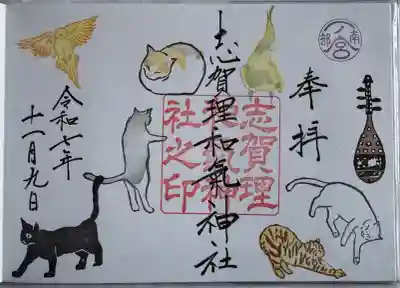 南部
一ノ宮
奉拝
志賀理和氣神社
志賀理
和氣神
社之印
令和七年
十一月九日